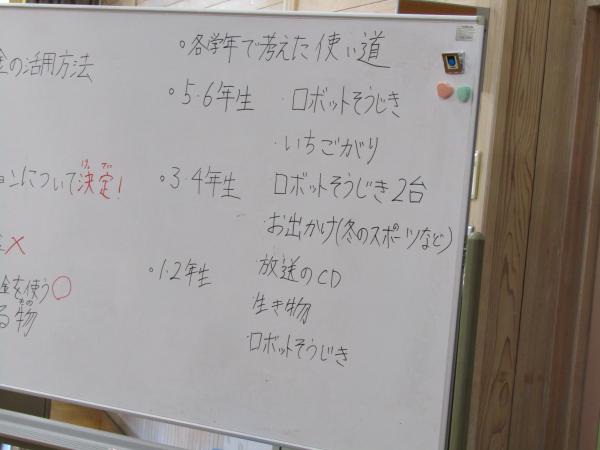 金の活用方法
ョンについて決定!
けってい
×
金を使う○
る物
もの
○各学年で考えた使い道
○5·6年生 ·ロボットそうじき
·いちごがり
○3·4年生 ロボットそうじき2台
お出かけ(冬のスポーツなど)
○1·2年生 ·放送のCD
生き物
ロボットそうじき